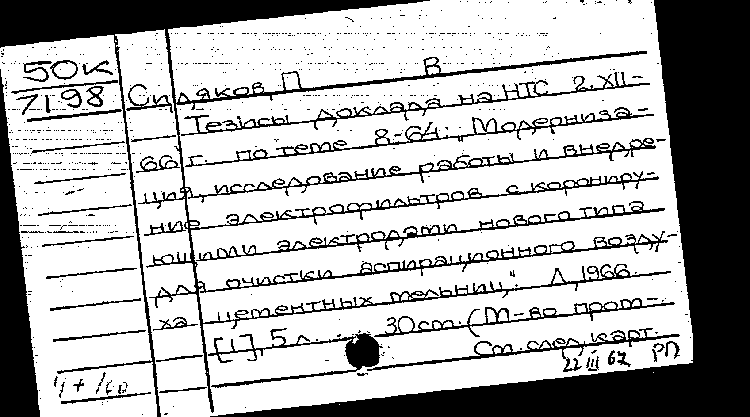 50К
7198 Сидяков, П В
Тезисы доклада на НТС 2.XII-
66 г. по теме 8-64: „Модерниза-
ция, исследование работы и внедре-
ние электрофильтров с корониру-
ющими электродами нового типа
для очистки аспирационного возду-
ха цементных мельниц". Л, 1966.
[1], 5 л. 30см. (М-во пром-
См. след. карт.
22 III 67 РП